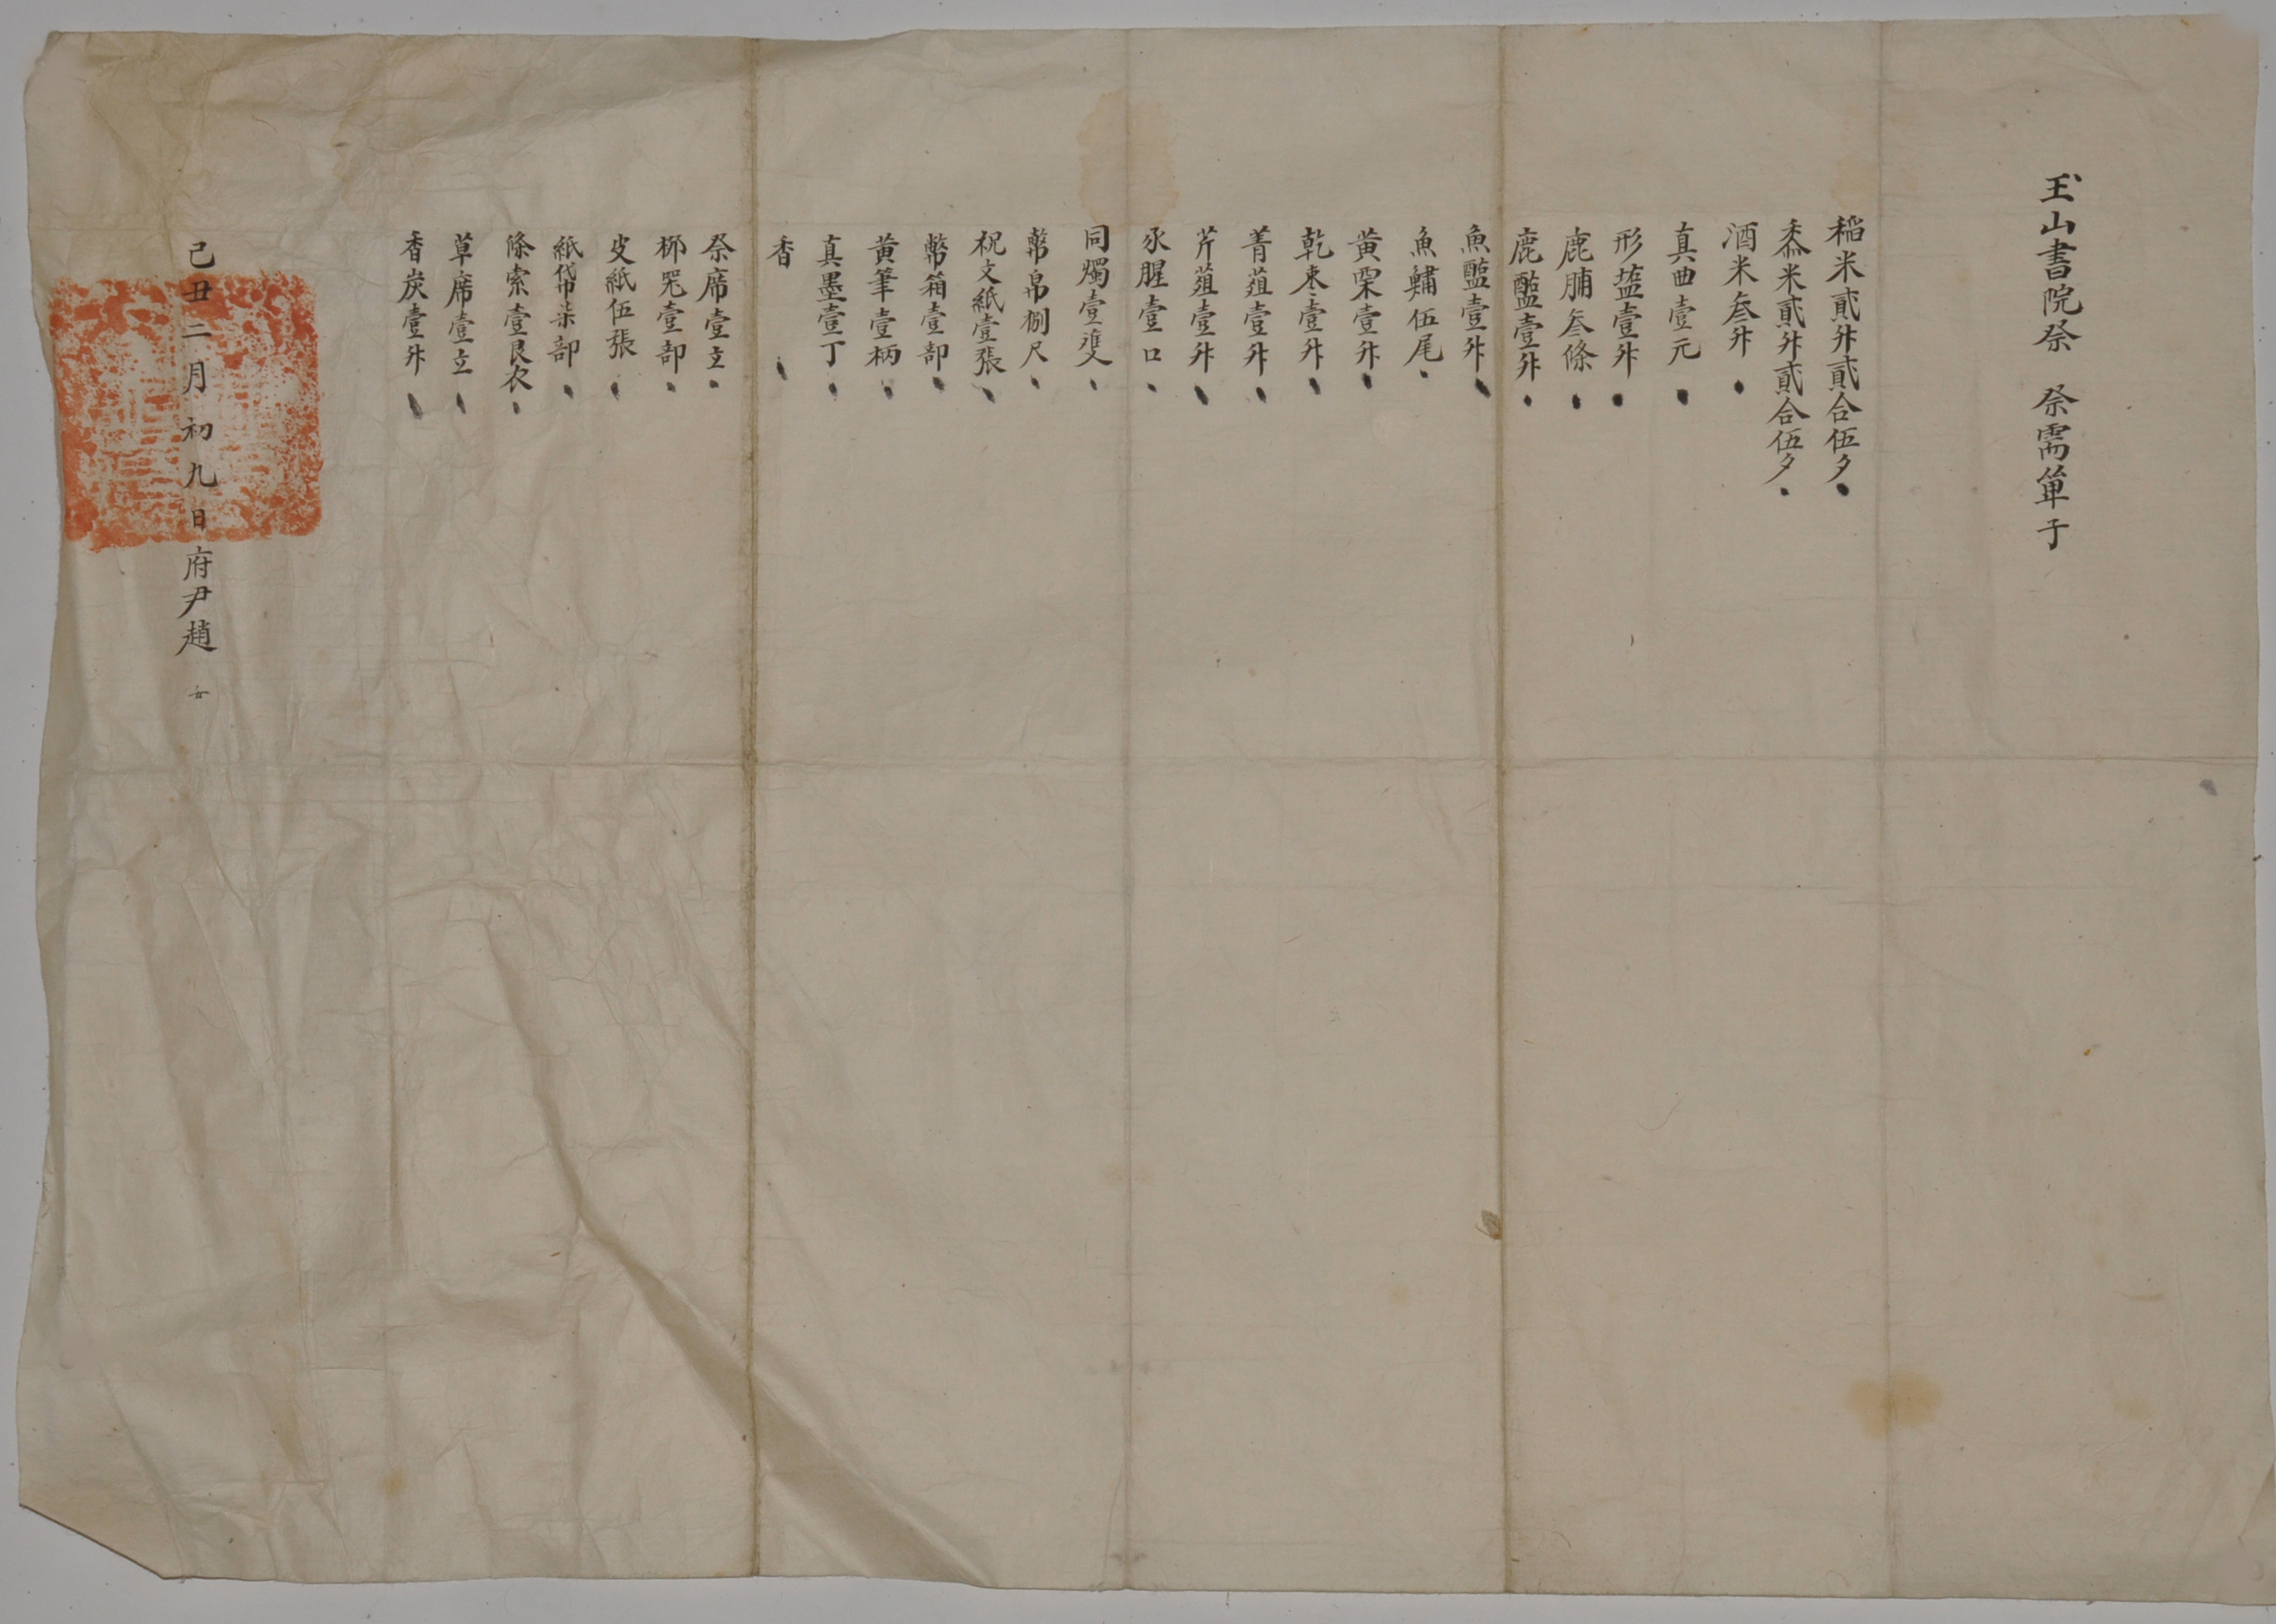 玉山書院祭 祭需單子
稻米貳升貳合伍夕
黍米貳升貳合伍夕
酒米叄升
真曲壹元
形塩壹升
鹿脯叄條
鹿醢壹升
魚醢壹升
魚鱐伍尾
黃栗壹升
乾棗壹升
菁葅壹升
芹葅壹升
豕腥壹口
同燭壹雙
幣帛捌尺
祝文紙壹張
幣箱壹部
黃筆壹柄
真墨壹丁
香
祭席壹立
壹部
皮紙伍張
紙帒柒部
條索壹艮衣
草席壹立
香炭壹升
己丑二月初九日府尹趙